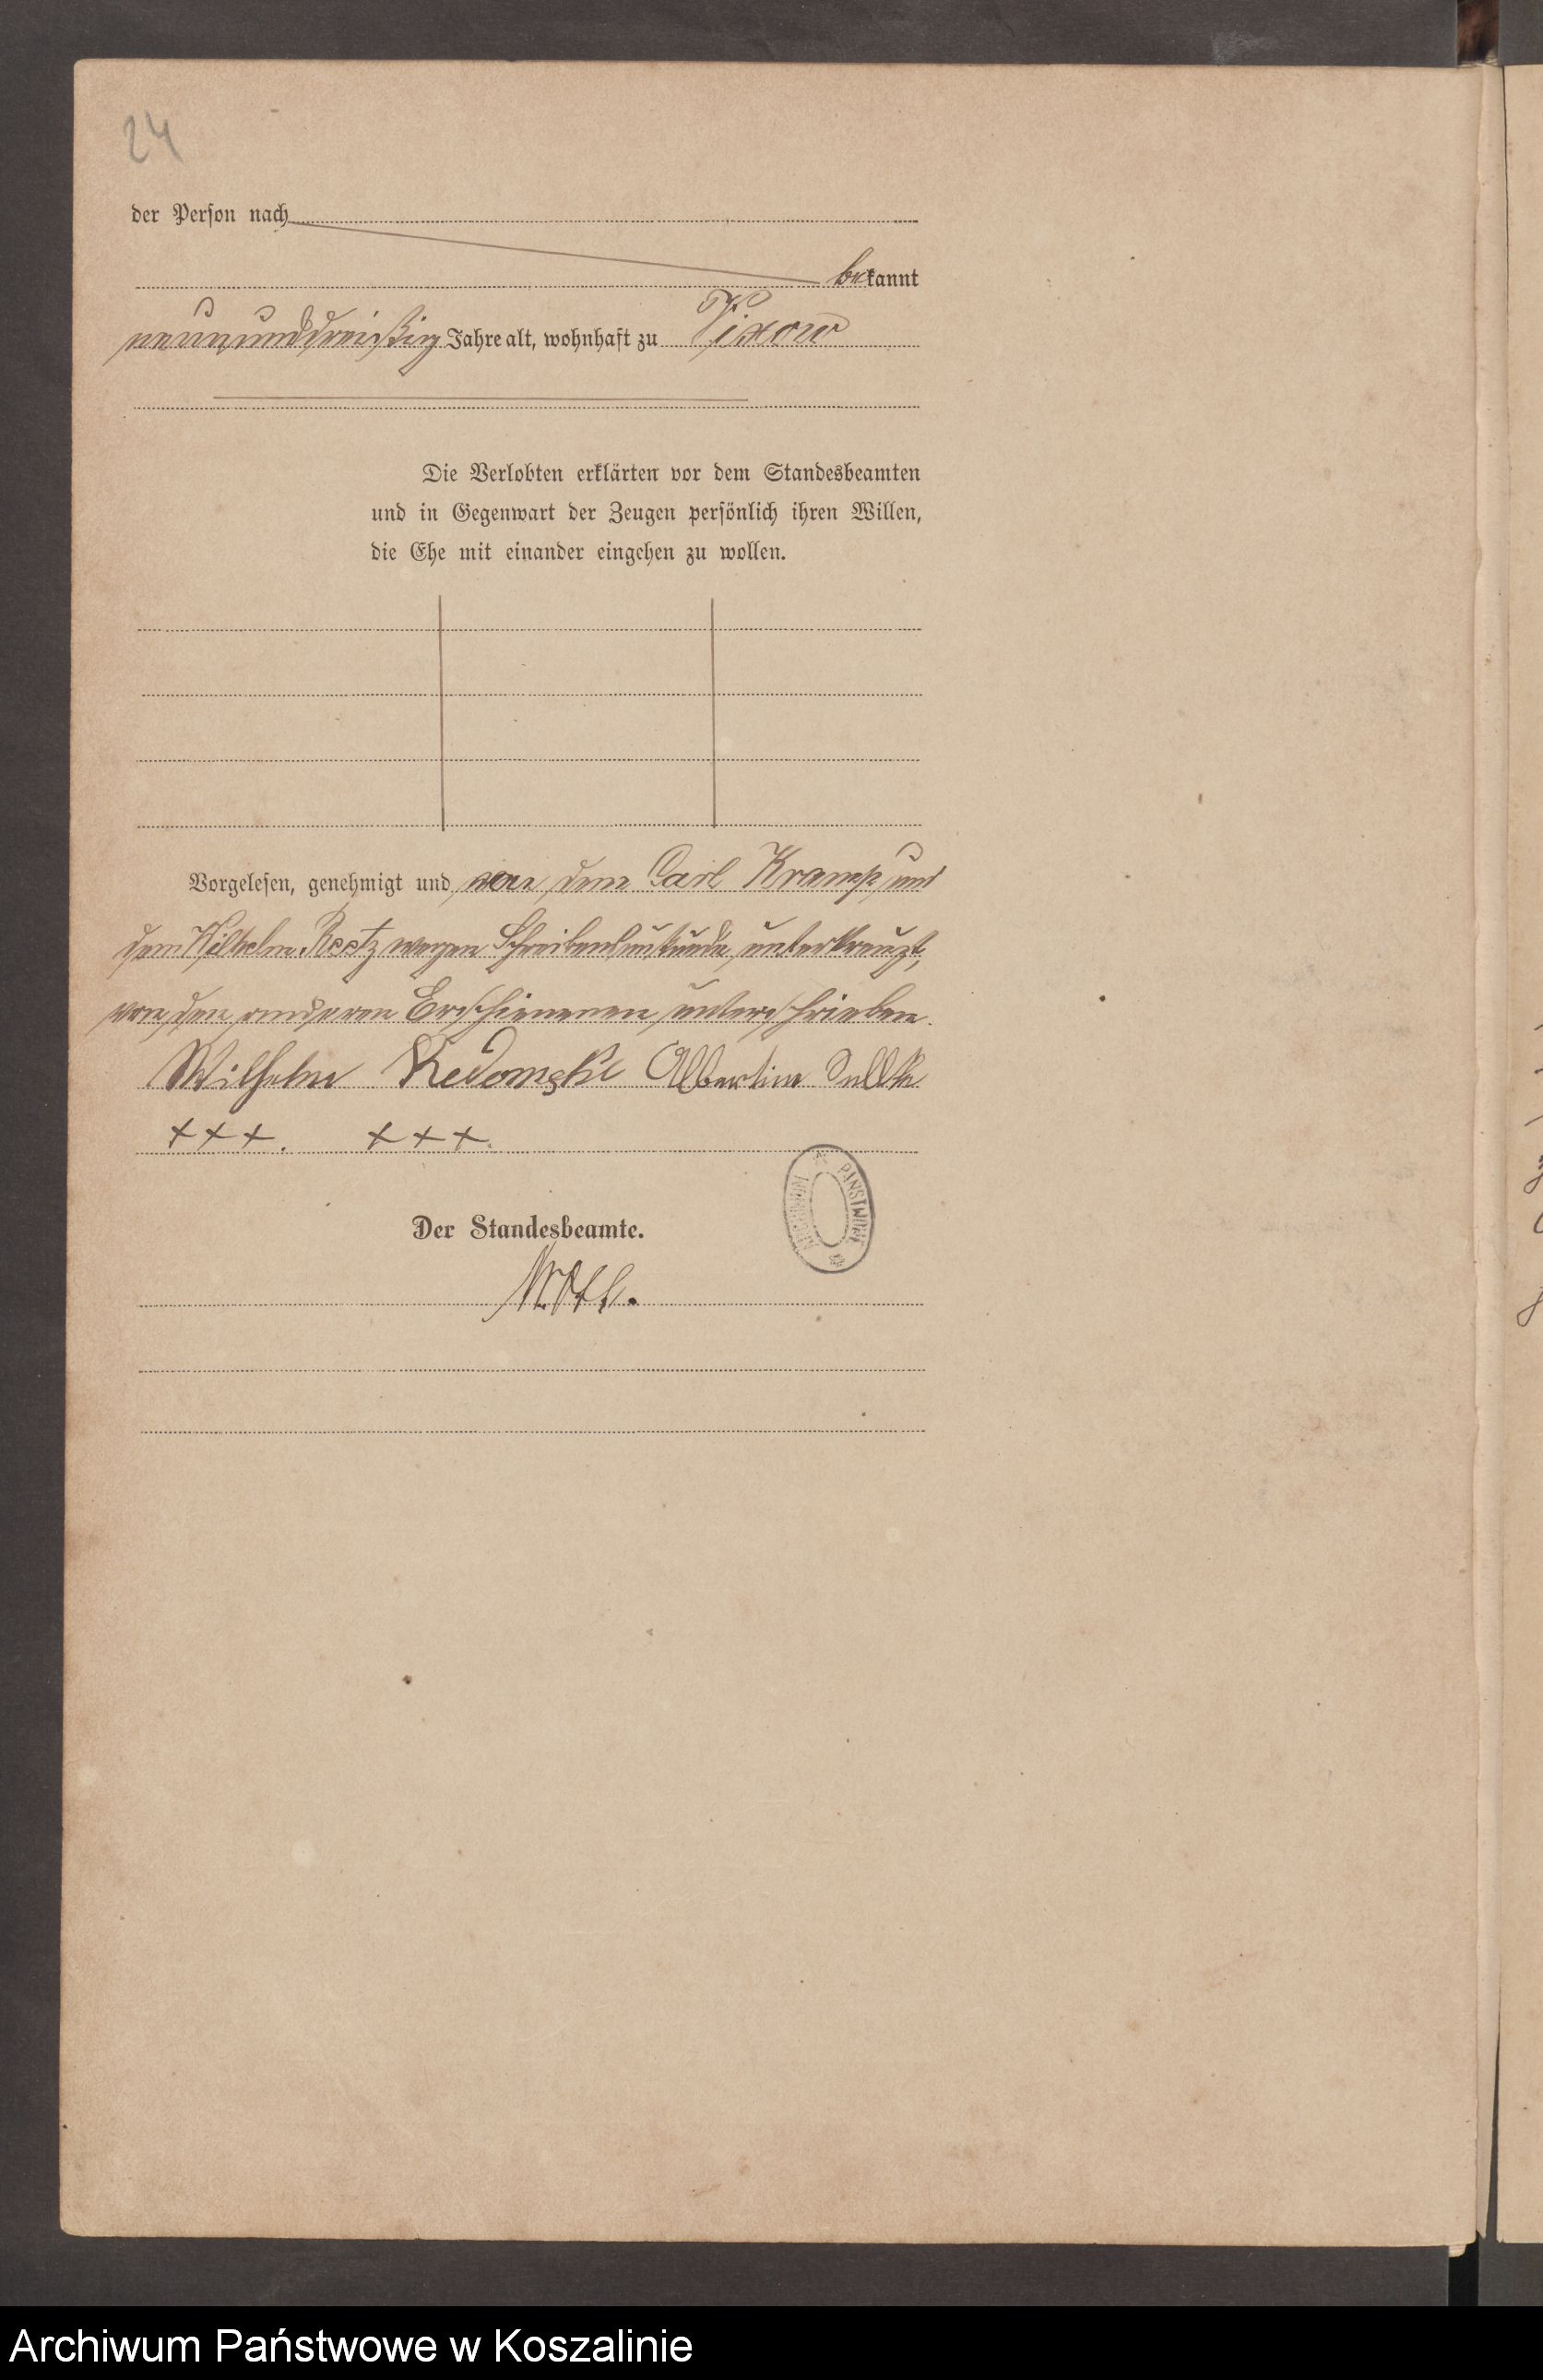 24
der Person nach
bekannt
neununddreißig Jahre alt, wohnhaft zu Vixow
Die Verlobten erklärten vor dem Standesbeamten
und in Gegenwart der Zeugen persönlich ihren Willen,
die Ehe mit einander eingehen zu wollen.
Vorgelesen, genehmigt und von dem Carl Kramp und
dem Wilhelm Reetz wegen Schreibensunkunde unterkreuzt,
von den anderen Erschienenen unterschrieben.
Wilhelm Redomske Albertine Sellke
+++. +++.
ARCHIWUM PAŃSTWOWE
Der Standesbeamte.
Archiwum Państwowe w Koszalinie